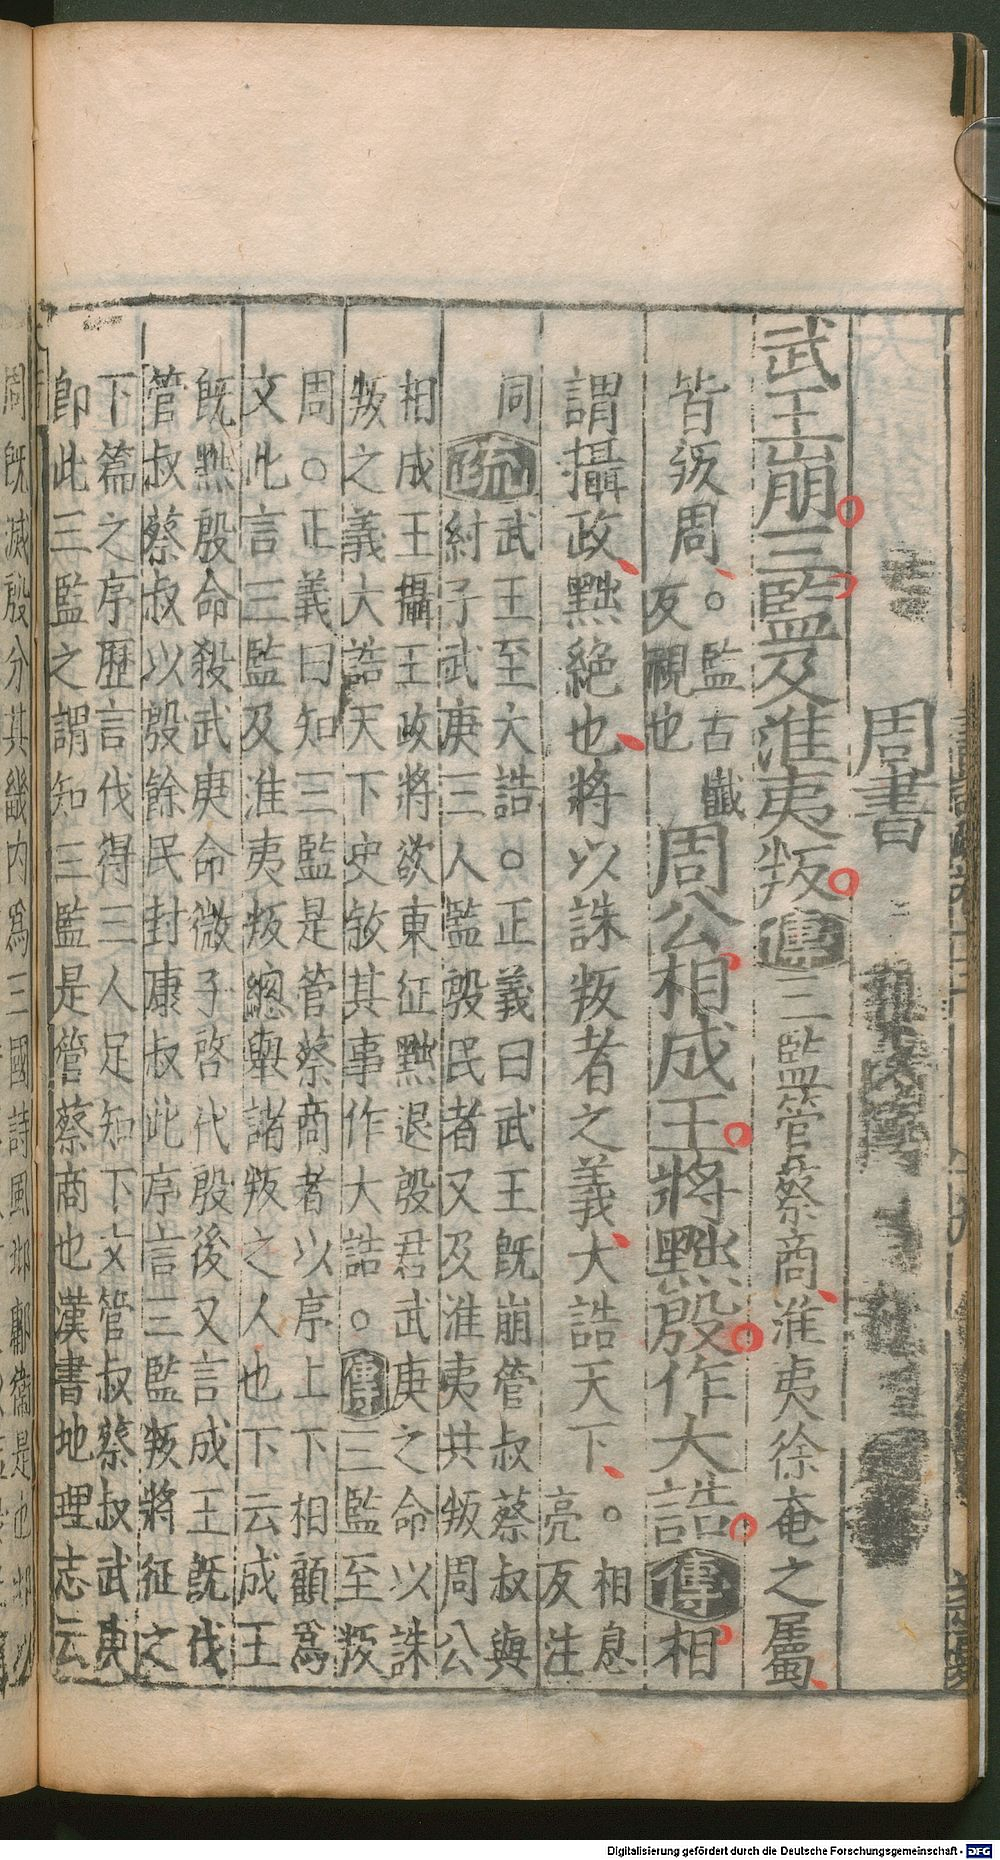 周書
武王崩三監及淮夷叛傳三監管蔡商淮夷徐奄之屬
皆叛周。監古懺反視也周公相成王將黜殷作大誥傳相
謂攝政黜絶也將以誅叛者之義大誥天下。相息亮反注
同疏武王至大誥。正義曰武王旣崩管叔蔡叔與
紂子武庚三人監殷民者又及淮夷共叛周公
相成王攝王政將欲東征黜退殷君武庚之命以誅
叛之義大誥天下史敘其事作大誥。傳三監至叛
周。正義曰知三監是管蔡商者以序上下相顧爲
文此言三監及淮夷叛總舉諸叛之人也下云成王
旣黜殷命殺武庚命微子啓代殷後又言成王旣伐
管叔蔡叔以殷餘民封康叔此序言三監叛將征之
下篇之序歷言伐得三人足知下文管叔蔡叔武庚
即此三監之謂知三監是管蔡商也漢書地理志云
周旣滅殷分其畿内爲三國詩風邶鄘衛是也邶
Digitalisierung gefördert durch die Deutsche Forschungsgemeinschaft - DFG